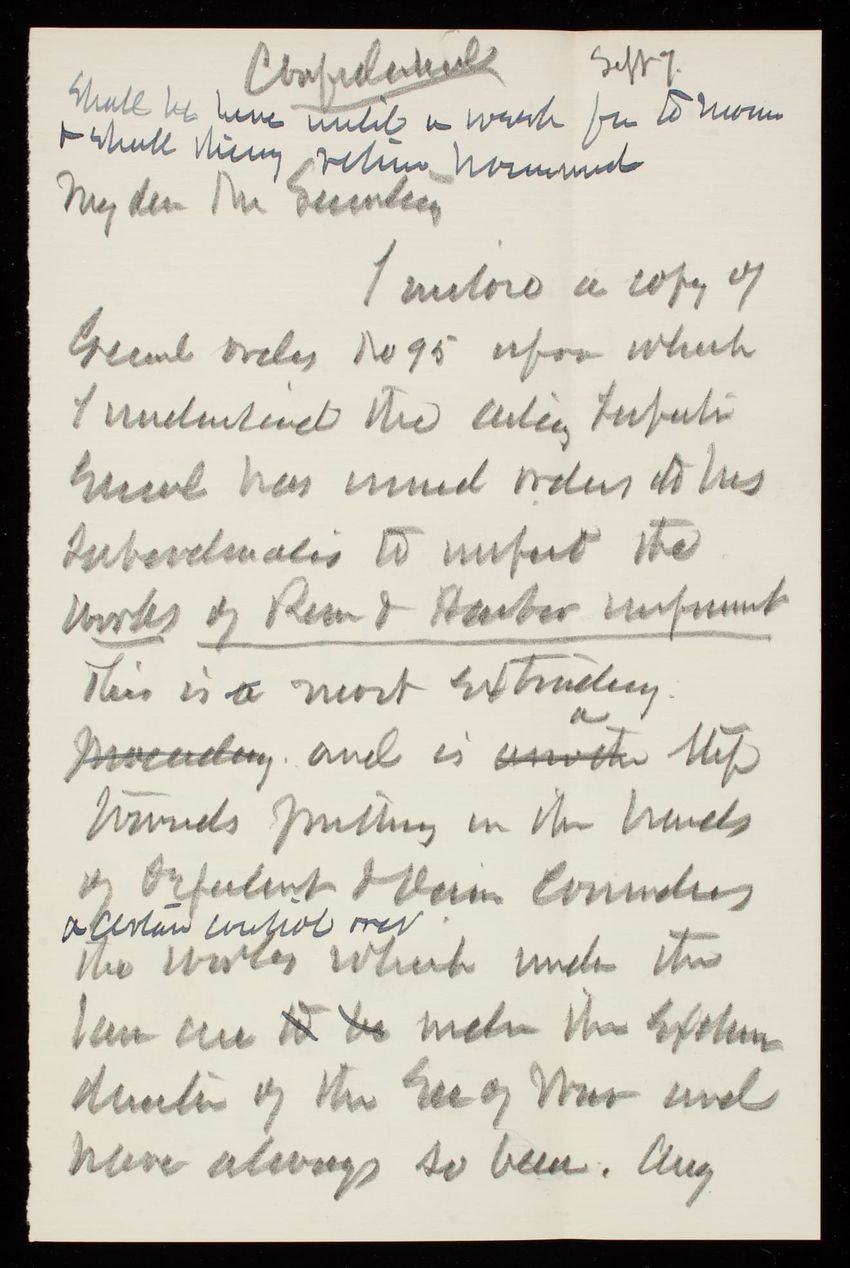 Confidential Sept 7.
Shall be here until a week from to morrow
& shall then return homeward
My dear Mr Secretary
I enclose a copy of
General orders No 95 upon which
I understand the acting Inspector
General has issued orders to his
Subordinates to inspect the
works of River & Harbor improvement
This is a most extraordinary
proceeding. and is another a step
towards putting in the hands
of and Division Commanders
a certain control over
the works which under the
law are to be under the Exclusive
direction of the Sec of War and
have always so been. Any